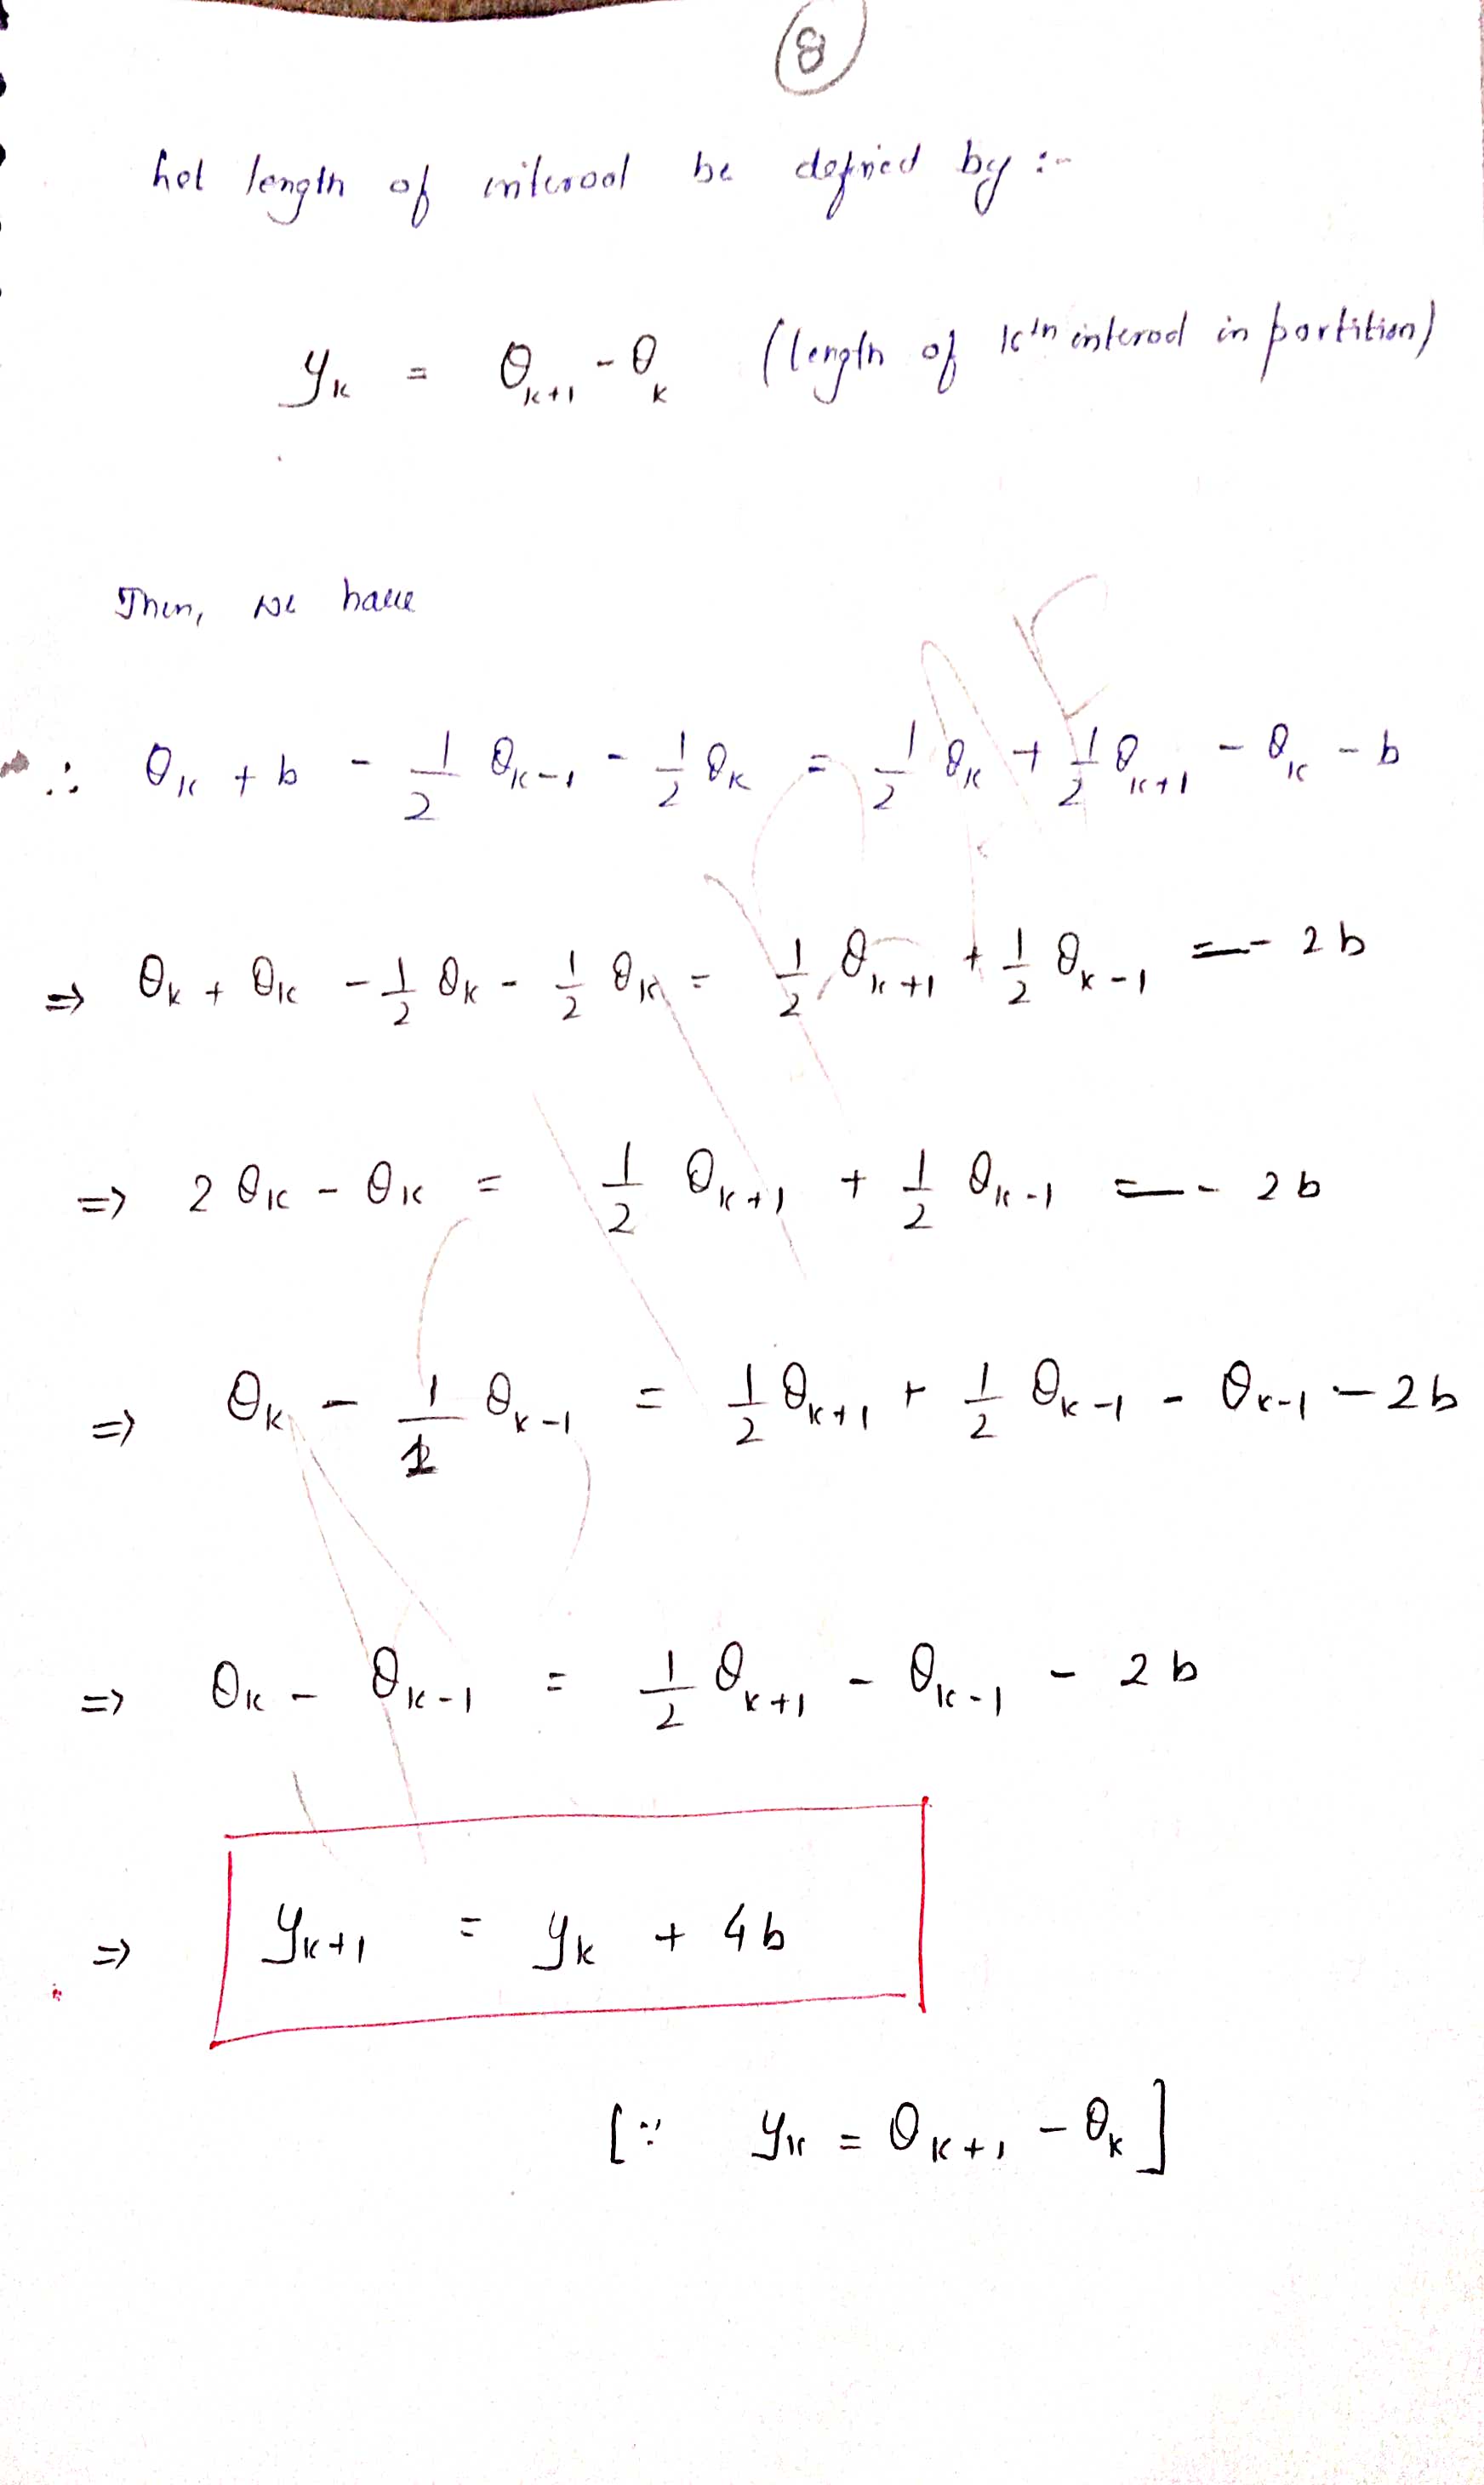 8
Let length of interval be defined by :-
y_k = θ_{k+1} - θ_k (length of kth interval in partition)
Then, we have
∴ θ_k + b - 1/2 θ_{k-1} - 1/2 θ_k = 1/2 θ_k + 1/2 θ_{k+1} - θ_k - b
⇒ θ_k + θ_k - 1/2 θ_k - 1/2 θ_k = 1/2 θ_{k+1} + 1/2 θ_{k-1} - 2b
⇒ 2θ_k - θ_k = 1/2 θ_{k+1} + 1/2 θ_{k-1} - 2b
⇒ θ_k - 1/1 θ_{k-1} = 1/2 θ_{k+1} + 1/2 θ_{k-1} - θ_{k-1} - 2b
⇒ θ_k - θ_{k-1} = 1/2 θ_{k+1} - θ_{k-1} - 2b
⇒ y_{k+1} = y_k + 4b
[∵ y_k = θ_{k+1} - θ_k]